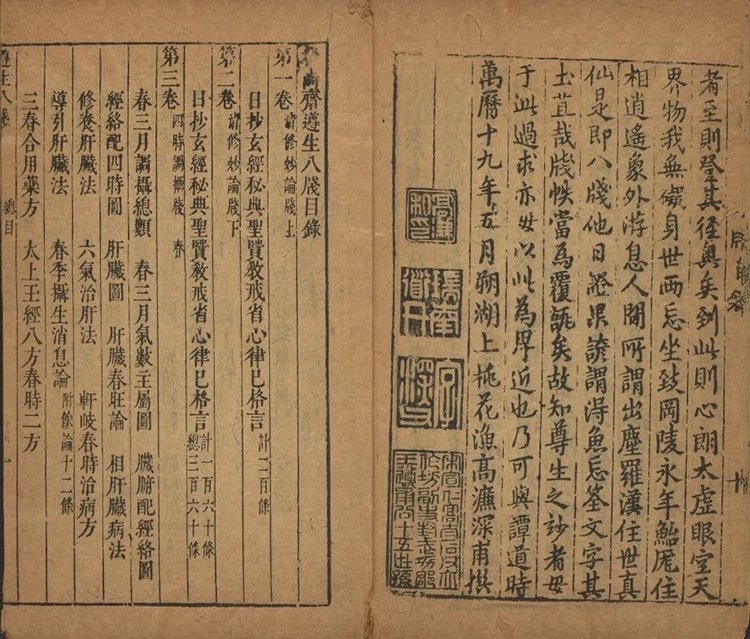 者至則登其徑奧矣到此則心朗太虛眼空天
界物我無礙身世兩忘坐致岡陵永年鮐厖住
相逍遙象外游息人間所謂出塵羅漢住世真
仙是即八牋他日證果諺謂得魚忘筌文字其
土苴哉牋帙當為覆瓿矣故知尊生之妙者毋
于此過求亦毋以此為厚近也乃可與譚道時
萬曆十九年五月朔湖上桃花漁高濂深甫撰
高濂私印
瑞南道人
齋遵生八牋目錄
第一卷 清修妙論牋上
日抄玄經秘典聖賢教戒省心律己格言 計一百條
第二卷 清修妙論牋下
日抄玄經秘典聖賢教戒省心律己格言 計一百六十條 總三百六十條
第三卷 四時調攝牋 春
春三月調攝總類 春三月氣數主屬圖 臟腑配經絡圖
經絡配四時圖 肝臟圖 肝臟春旺論 相肝臟病法
修養肝臟法 六氣治肝法 軒岐春時治病方
導引肝臟法 春季攝生消息論 附餘論十二條
三春合用藥方 太上王經八方春時二方
遵生八牋 總目 一